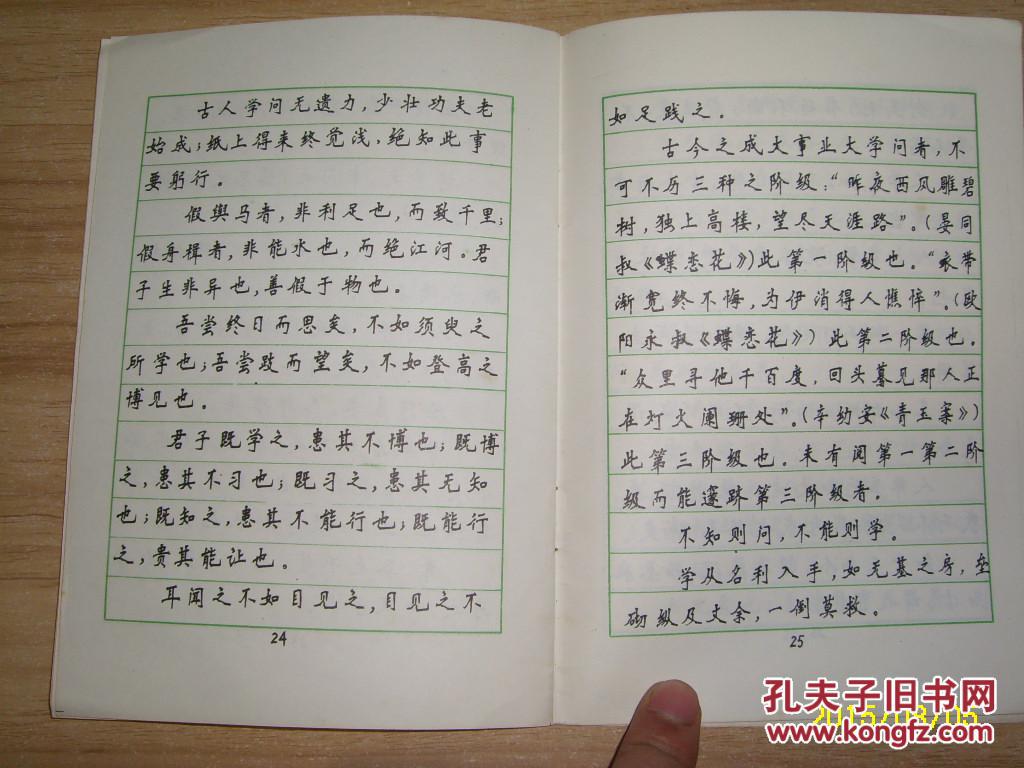 古人学问无遗力，少壮功夫老
始成；纸上得来终觉浅，绝知此事
要躬行。
假舆马者，非利足也，而致千里；
假舟楫者，非能水也，而绝江河。君
子生非异也，善假于物也。
吾尝终日而思矣，不如须臾之
所学也；吾尝跂而望矣，不如登高之
博见也。
君子既学之，患其不博也；既博
之，患其不习也；既习之，患其无知
也；既知之，患其不能行也；既能行
之，贵其能让也。
耳闻之不如目见之，目见之不
24
如足践之。
古今之成大事业大学问者，不
可不历三种之阶级：“昨夜西风雕碧
树，独上高楼，望尽天涯路”。（晏同
叔《蝶恋花》）此第一阶级也。“衣带
渐宽终不悔，为伊消得人憔悴”。（欧
阳永叔《蝶恋花》）此第二阶级也。
“众里寻他千百度，回头蓦见那人正
在灯火阑珊处”。（辛幼安《青玉案》）
此第三阶级也。未有阅第一第二阶
级而能遽跻第三阶级者。
不知则问，不能则学。
学从名利入手，如无基之房，垒
砌纵及丈余，一倒莫救。
25
孔夫子旧书网
www.kongfz.com